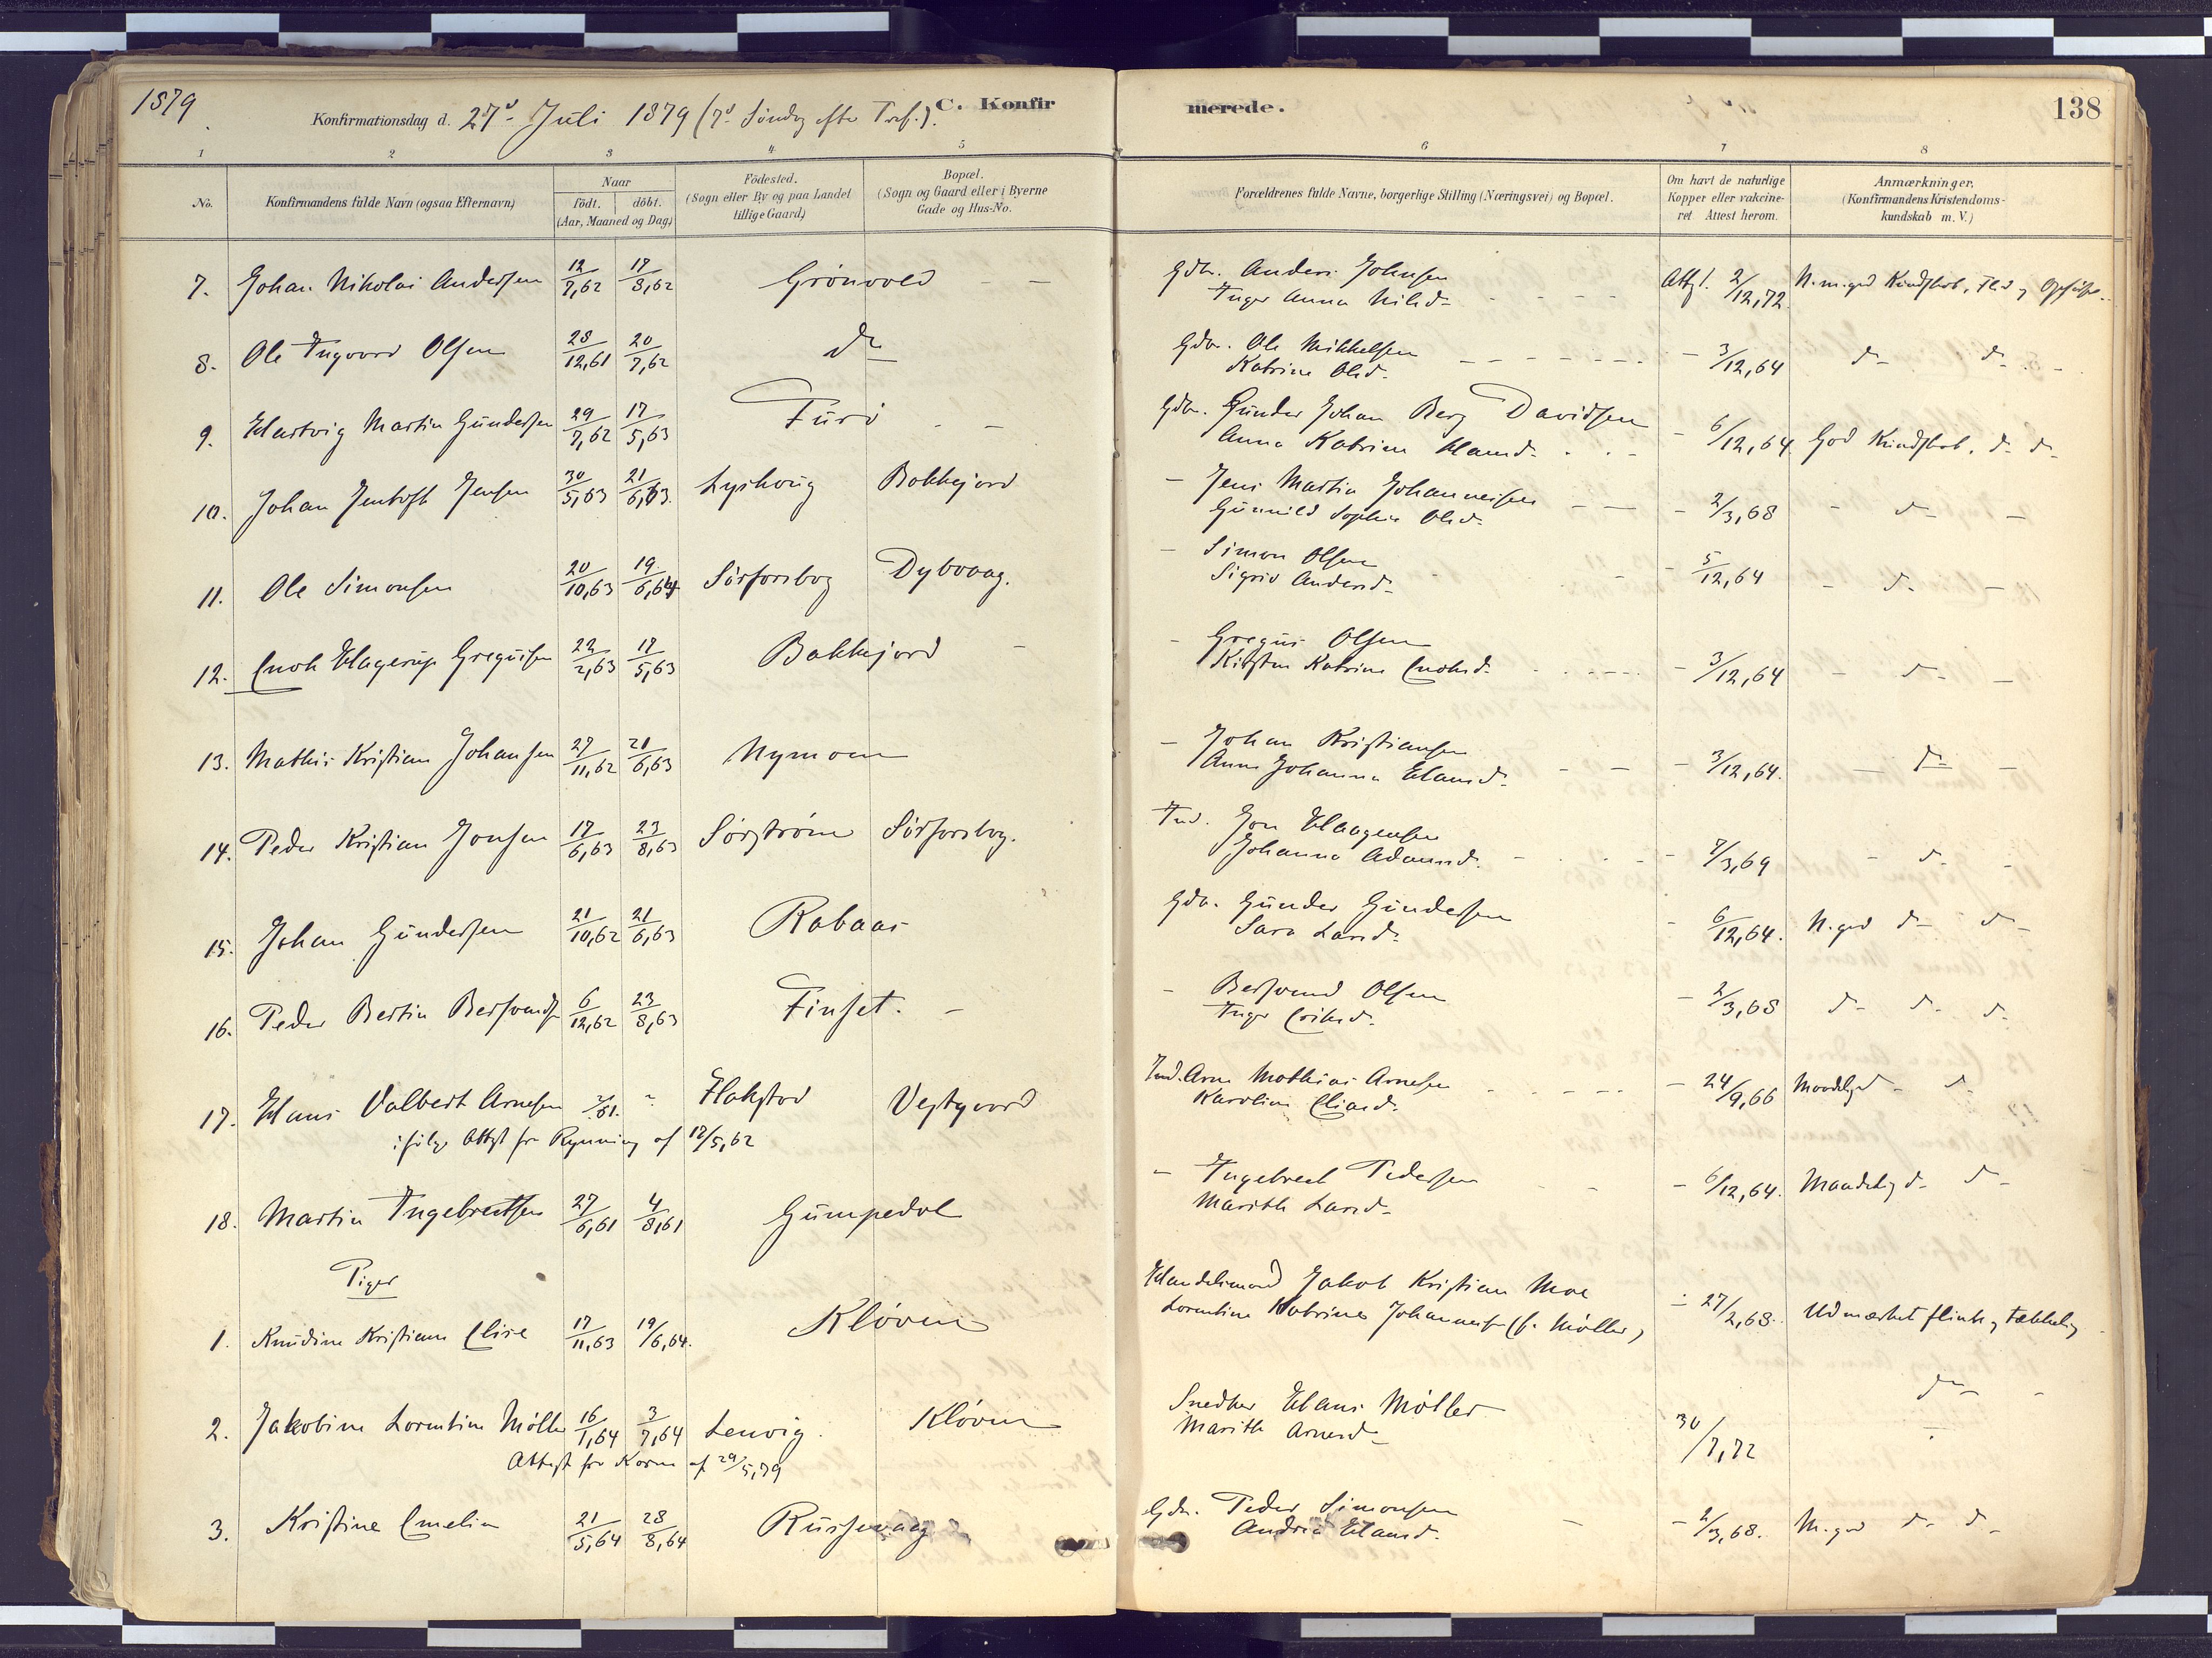 1879
Konfirmationsdag d. 27de Juli 1879 (7de Søndag efter Tref.).
C. Konfirmerede.
138
1 2 3 4 5 6 7 8
No.
Konfirmandens fulde Navn (ogsaa Efternavn)
Naar
födt. döbt.
(Aar, Maaned og Dag)
Födested.
(Sogn eller By og paa Landet
tillige Gaard)
Bopæl.
(Sogn og Gaard eller i Byerne
Gade og Hus-No.
Forældrenes fulde Navne, borgerlige Stilling (Næringsvei) og Bopæl.
Om havt de naturlige
Kopper eller vakcine-
ret Attest herom.
Anmærkninger.
(Konfirmandens Kristendoms-
kundskab m. V.)
7. Johan Nikolai Andersen 12/7,62 17/8,62 Grönvold - - Gdbr. Anders Johnsen Attst. 2/12,72 N.m.god Kundskab, Flid og Opførsel.
Inger Anna Nilsd.
8. Ole Ingvard Olsen 28/12,61 20/7,62 do Gdbr. Ole Mikkelsen - 3/12,64 do do
Katrine Olsd.
9. Hartvig Martin Gundersen 29/7,62 17/5,63 Furö - - Gdbr. Gunder Johan Berg Davidsen - 6/12,64 God Kundskab. do do
Anna Katrine Hansd.
10. Johan Jentoft Jensen 30/5,63 21/6,63. Lyshoug Bakkejord - Jens Martin Johannesen - 2/3,68 - do -
Gunnild Sophie Olsd.
11. Ole Simonsen 20/10,63 19/6,64 Sörforsbog Dybvaag. - Simon Olsen - 5/12,64 - do -
Sigrid Andersd.
12. Enok Hagerup Gregusen 22/2,63 17/5,63 Bakkejord - - Gregus Olsen - 3/12,64 - do -
Kirsten Katrine Enoksd.
13. Mathis Kristian Johansen 27/11,62 21/6,63 Nymoen - Johan Kristiansen - 3/12,64. - do -
Anne Johanna Hansd.
14. Peder Kristian Jonsen 17/6,63 23/8,63 Sörströmen Sörforsbog. Ind. Jon Haagensen - 7/3,69 - do -
Johanna Adamsd.
15. Johan Gundersen 21/10,62 21/6,63 Rabaas Gdbr. Gunder Gundersen - 6/12,64. N.god do do
Sara Larsd.
16. Peder Bertin Bersvends. 6/12,62 23/8,63 Finset. - - Bersvend Olsen - 2/3,68 do do do
Inger Eriksd.
17. Hans Valbert Arnesen ?/61. ? Flakstad Vestgaard Ind. Arne Mathias Arnesen - 24/9,66 Maadelig do do
Karoline Eliasd.
ifølge Attest fra Rynning af 12/5,62
18. Martin Ingebretsen 27/6,61 4/8,61 Gumpedal - Ingebret Pedersen - 6/12,64. Maadelig do do
Marith Larsd.
Piger
1. Knudine Kristiane Elise 17/11,63 19/6,64. Klöven Handelsmand Jakob Kristian Moe - 27/2,68. Udmærket flink og tækkelig
Lorentine Katrine Johannesd. (f. Møller)
2. Jakobine Lorentine Möller 16/1,64 3/7,64 Lenvig. Klöven Snedker Hans Möller 30/7,72 do -
Marith Arnesd.
Attest fra Horne af 29/5,79
3. Kristine Emelie 21/5,64 28/8,64 Russevaag Gdbr. Peder Simonsen - 2/3,68. M.god do do
Andrea Hansd.